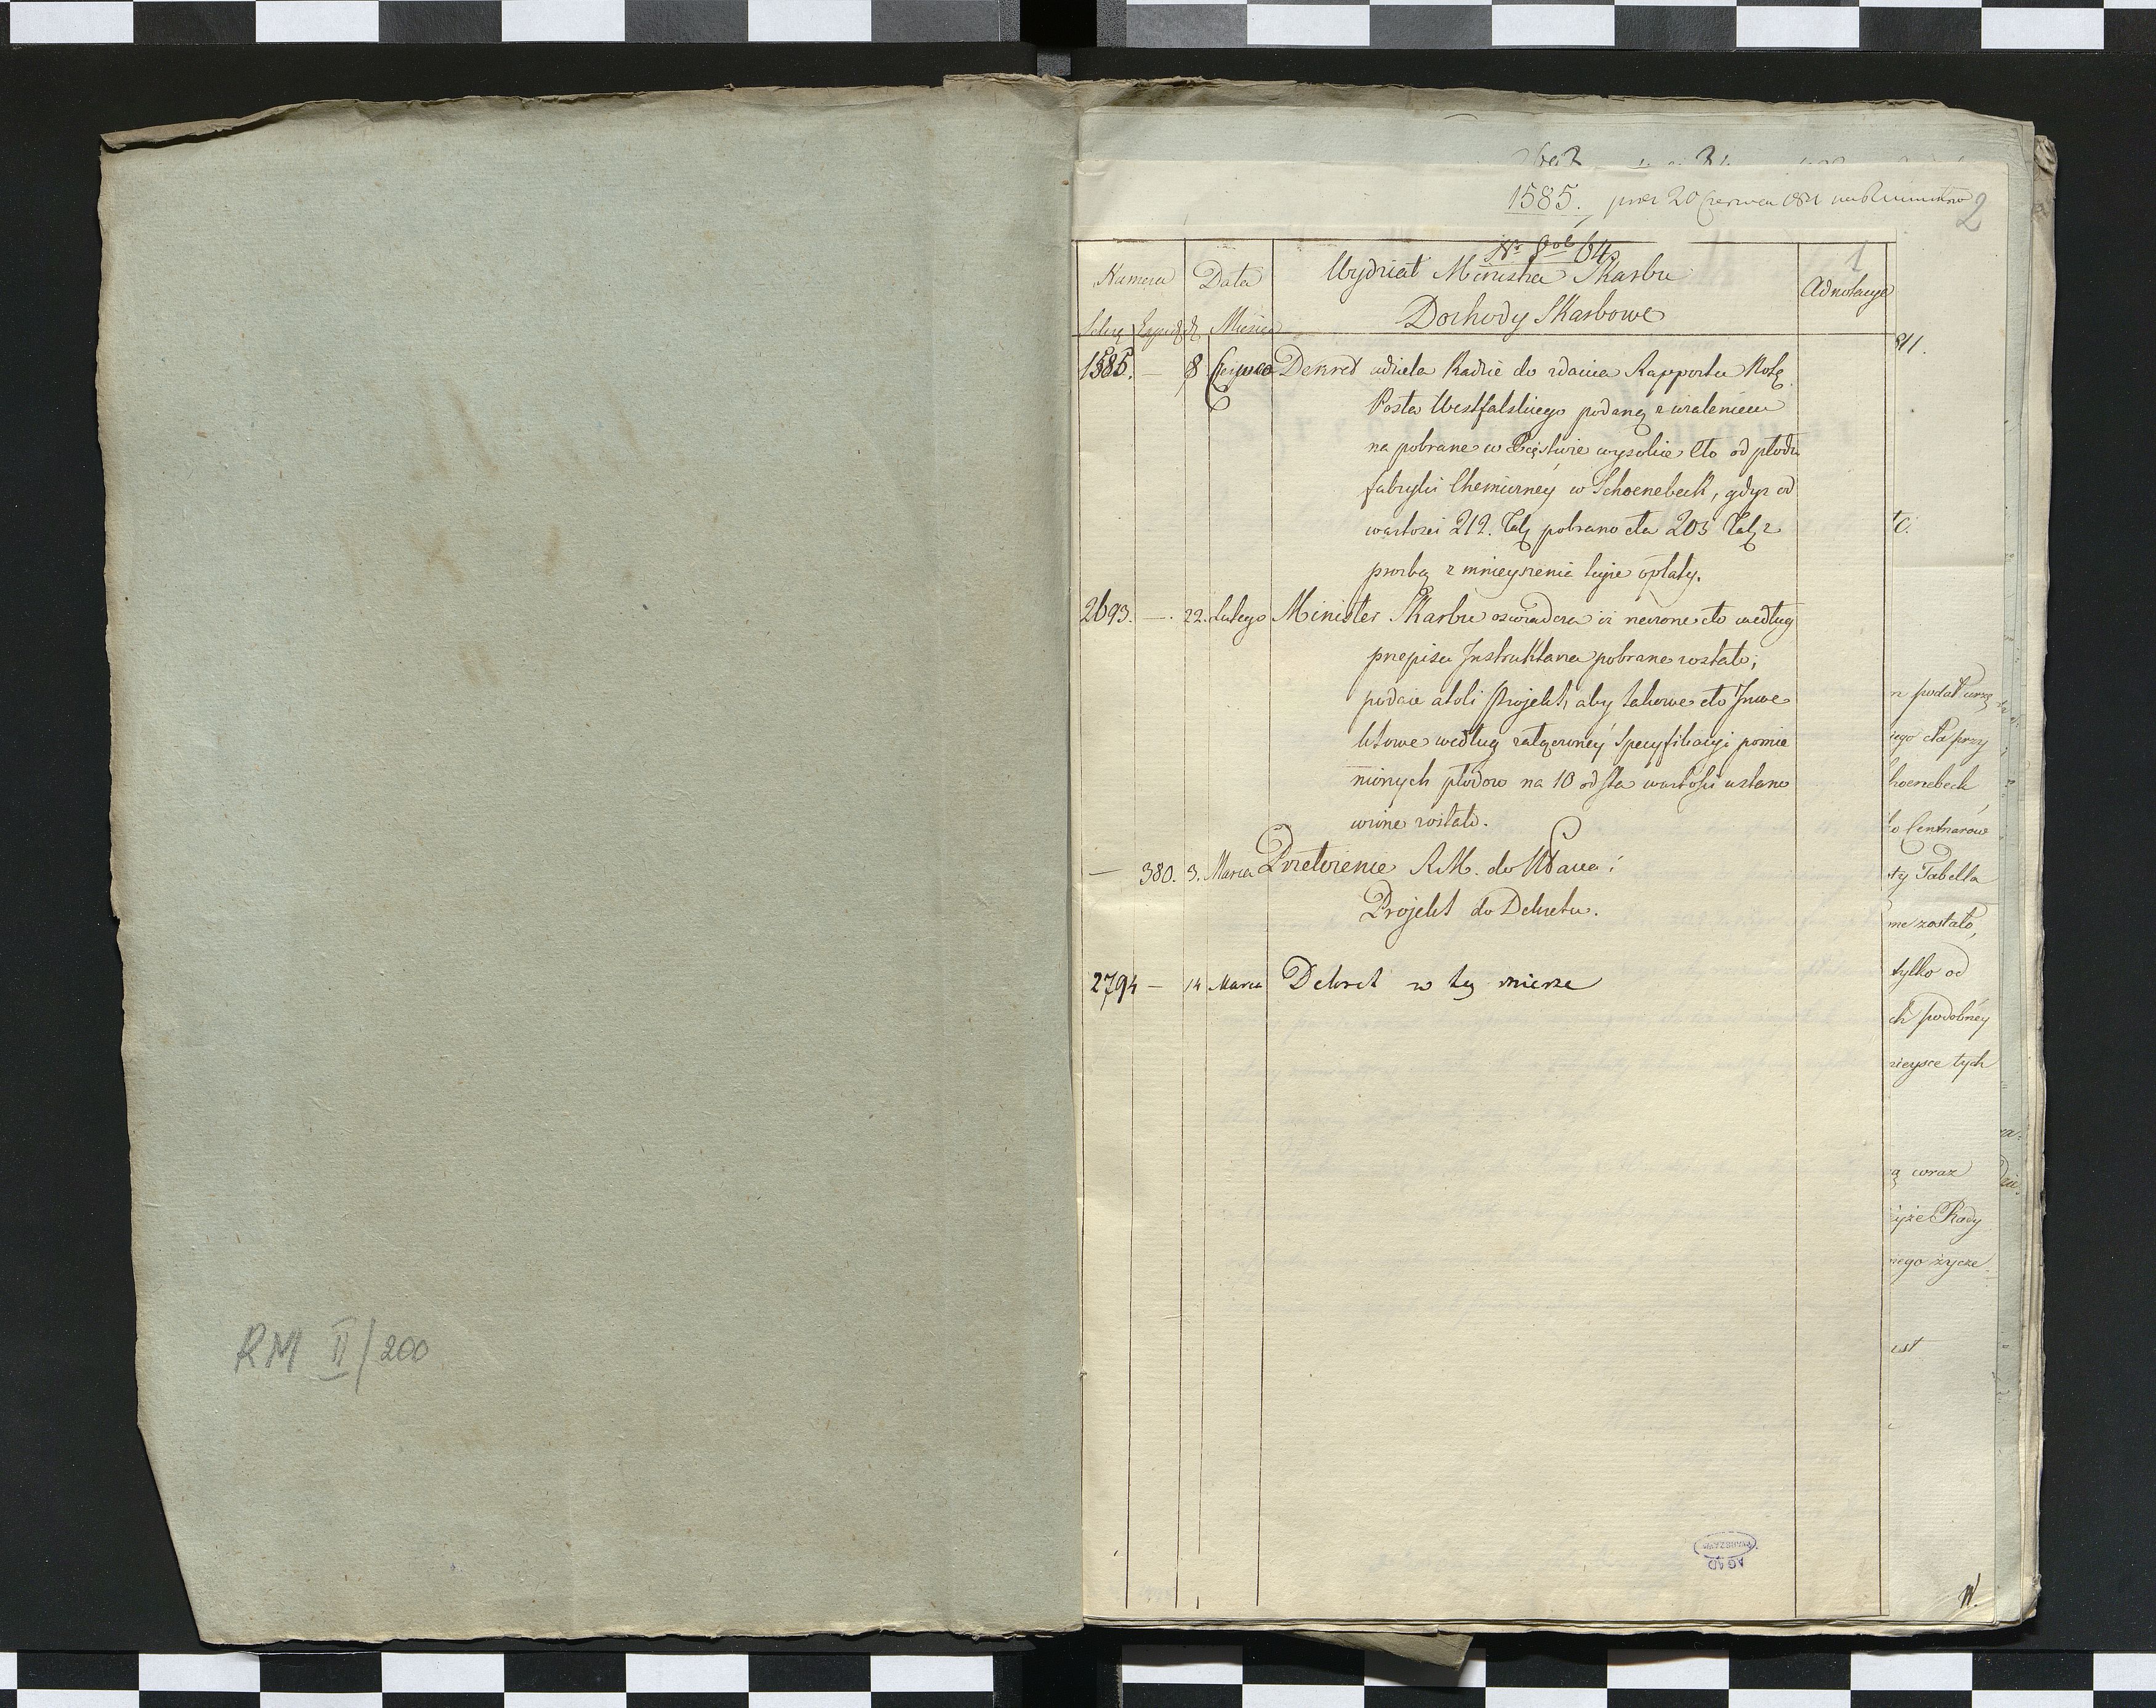 RM II/200
1585. 20 Czerwca
2
Nº 64.
1
Numera
Data
Wydział Ministra Skarbu
Dochody Skarbowe
Adnotacye
Miesiąc
1585. — 8 Czerwca Dekret udziela Radzie do zdania Rapportu Notę
Posła Westfalskiego podaną z użaleniem
na pobrane w Xięstwie wysokie cło od płodu
fabryki Chemiczney w Schoenebeck, gdyż od
wartości 212. Tal. pobrano cła 203 Tal. z
prozbą zmnieyszenia teyże opłaty.
2693. — 22. Lutego Minister Skarbu oswiadcza iż rzeczone cło według
przepisu Instruktarza pobrane zostało;
podaie atoli Projekt, aby takowe cło
według załączoney Specyfikacyi pomie
nionych płodow na 10 od sta wartości ustano
wione zostało.
— 380. 3. Marca Przełożenie R.M. do Króla i
Projekt do Dekretu.
2794 — 14 Marca Dekret w tey mierze
811.
to.
podał
iego cła przy
hoenebeck
Centnarow
ty Tabella
me zostało,
tylko od
ch podobney
mieysce tych
ą coraz
yże Rady
nego życze
est
AGAD
WARSZAWA